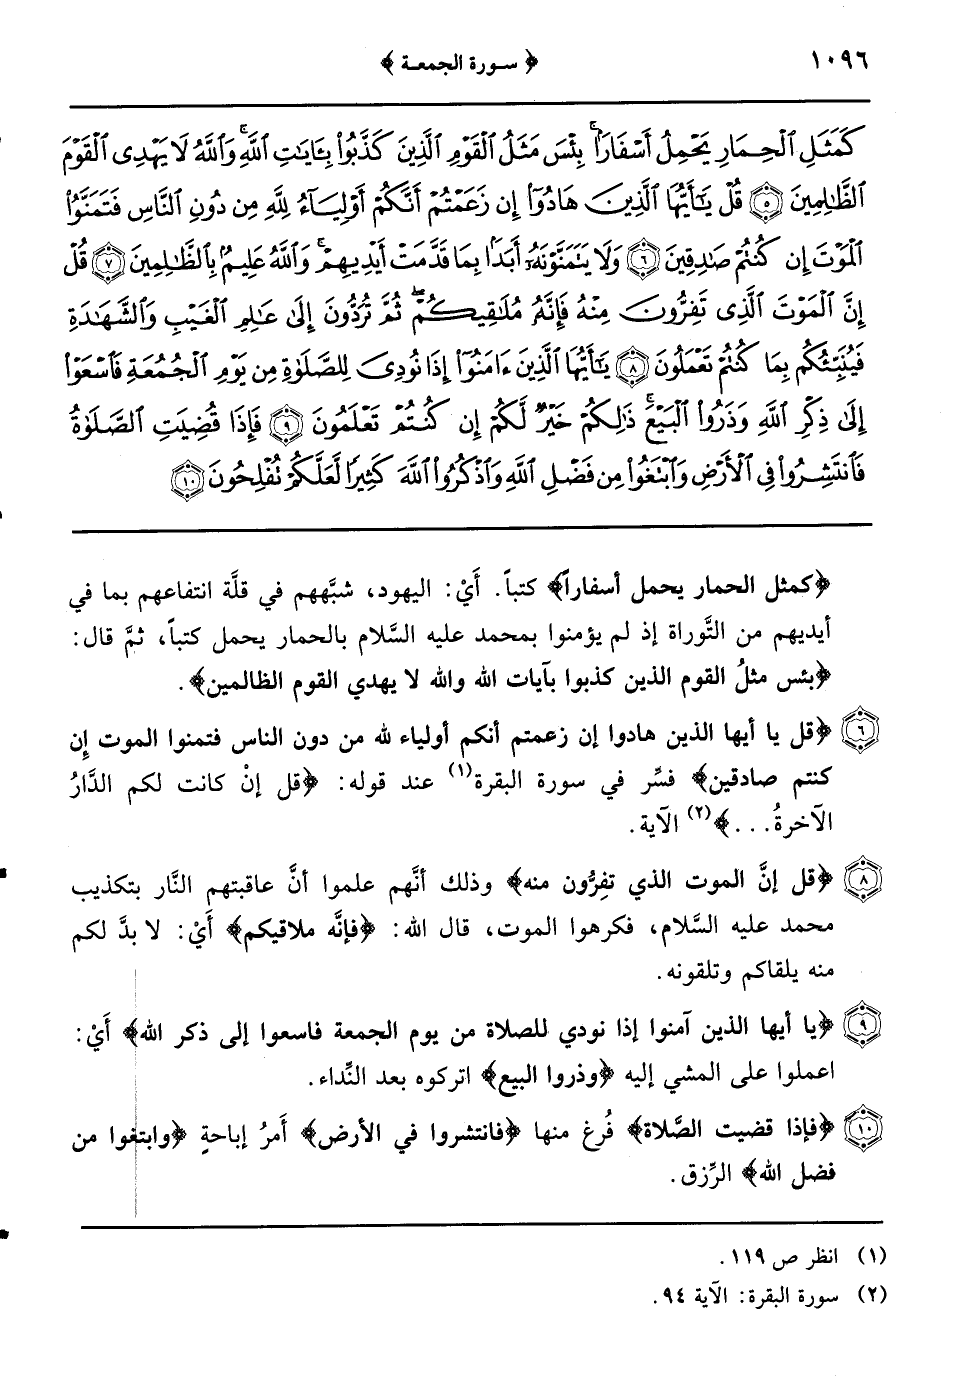 ١٠٩٦
﴿ سورة الجمعة ﴾
كَمَثَلِ ٱلْحِمَارِ يَحْمِلُ أَسْفَارًۢا ۚ بِئْسَ مَثَلُ ٱلْقَوْمِ ٱلَّذِينَ كَذَّبُوا۟ بِـَٔايَـٰتِ ٱللَّهِ ۚ وَٱللَّهُ لَا يَهْدِى ٱلْقَوْمَ
ٱلظَّـٰلِمِينَ ٥ قُلْ يَـٰٓأَيُّهَا ٱلَّذِينَ هَادُوٓا۟ إِن زَعَمْتُمْ أَنَّكُمْ أَوْلِيَآءُ لِلَّهِ مِن دُونِ ٱلنَّاسِ فَتَمَنَّوُا۟
ٱلْمَوْتَ إِن كُنتُمْ صَـٰدِقِينَ ٦ وَلَا يَتَمَنَّوْنَهُۥٓ أَبَدًۢا بِمَا قَدَّمَتْ أَيْدِيهِمْ ۚ وَٱللَّهُ عَلِيمٌۢ بِٱلظَّـٰلِمِينَ ٧ قُلْ
إِنَّ ٱلْمَوْتَ ٱلَّذِى تَفِرُّونَ مِنْهُ فَإِنَّهُۥ مُلَـٰقِيكُمْ ۖ ثُمَّ تُرَدُّونَ إِلَىٰ عَـٰلِمِ ٱلْغَيْبِ وَٱلشَّهَـٰدَةِ
فَيُنَبِّئُكُم بِمَا كُنتُمْ تَعْمَلُونَ ٨ يَـٰٓأَيُّهَا ٱلَّذِينَ ءَامَنُوٓا۟ إِذَا نُودِىَ لِلصَّلَوٰةِ مِن يَوْمِ ٱلْجُمُعَةِ فَٱسْعَوْا۟
إِلَىٰ ذِكْرِ ٱللَّهِ وَذَرُوا۟ ٱلْبَيْعَ ۚ ذَٰلِكُمْ خَيْرٌ لَّكُمْ إِن كُنتُمْ تَعْلَمُونَ ٩ فَإِذَا قُضِيَتِ ٱلصَّلَوٰةُ
فَٱنتَشِرُوا۟ فِى ٱلْأَرْضِ وَٱبْتَغُوا۟ مِن فَضْلِ ٱللَّهِ وَٱذْكُرُوا۟ ٱللَّهَ كَثِيرًا لَّعَلَّكُمْ تُفْلِحُونَ ١٠
﴿كمثل الحمار يحمل أسفاراً﴾ كتباً. أَيْ: اليهود، شبَّههم في قلَّة انتفاعهم بما في
أيديهم من التَّوراة إذ لم يؤمنوا بمحمد عليه السَّلام بالحمار يحمل كتباً، ثمَّ قال:
﴿بئس مثلُ القوم الذين كذبوا بآيات الله والله لا يهدي القوم الظالمين﴾.
٦ ﴿قل يا أيها الذين هادوا إن زعمتم أنكم أولياء لله من دون الناس فتمنوا الموت إِن
كنتم صادقين﴾ فسِّر في سورة البقرة(١) عند قوله: ﴿قل إنْ كانت لكم الدَّارُ
الآخرةُ...﴾(٢) الآية.
٨ ﴿قل إنَّ الموت الذي تفِرُّون منه﴾ وذلك أنَّهم علموا أنَّ عاقبتهم النَّار بتكذيب
محمد عليه السَّلام، فكرهوا الموت، قال الله: ﴿فإنَّه ملاقيكم﴾ أَيْ: لا بدَّ لكم
منه يلقاكم وتلقونه.
٩ ﴿يا أيها الذين آمنوا إذا نودي للصلاة من يوم الجمعة فاسعوا إلى ذكر الله﴾ أَيْ:
اعملوا على المشي إليه ﴿وذروا البيع﴾ اتركوه بعد النِّداء.
١٠ ﴿فإذا قضيت الصَّلاة﴾ فُرغ منها ﴿فانتشروا في الأرض﴾ أَمرُ إباحةٍ ﴿وابتغوا من
فضل الله﴾ الرِّزق.
(١) انظر ص ١١٩.
(٢) سورة البقرة: الآية ٩٤.